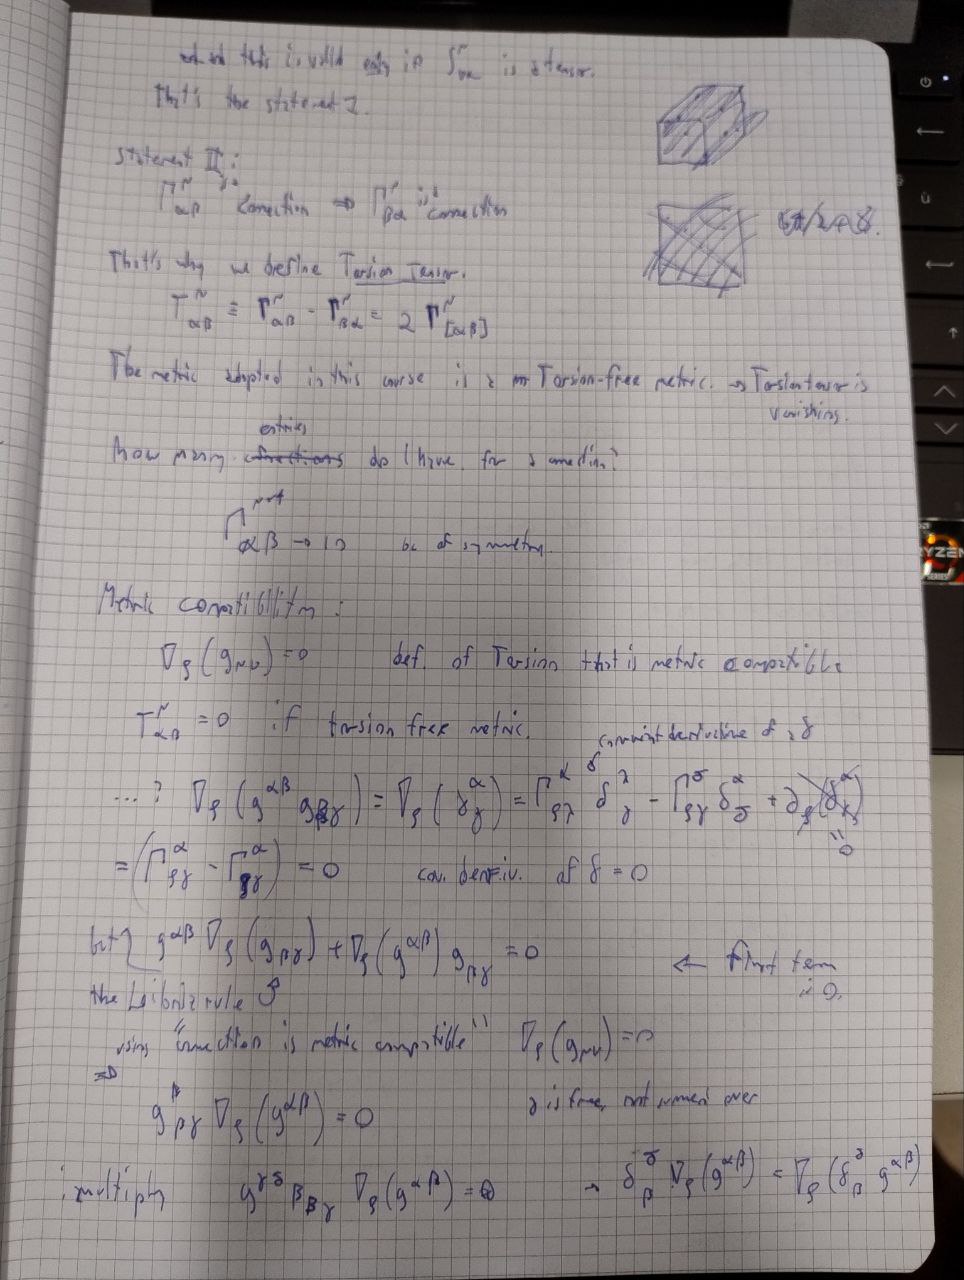 this is valid only if S^μ_{να} is a tensor.
That's the statement I.
Statement II:
Γ^μ_{αβ} is a connection ⇒ Γ^μ_{βα} is a connection
That's why we define Torsion Tensor.
T^μ_{αβ} ≡ Γ^μ_{αβ} - Γ^μ_{βα} = 2 Γ^μ_{[αβ]}
The metric adopted in this course is a Torsion-free metric. → Torsion tensor is
vanishing.
entries
how many do I have for a connection?
Γ αβ → 10 bc of symmetry.
Metric compatibility:
∇_ρ (g_{μν}) = 0 def. of Torsion that is metric compatible
T^μ_{αβ} = 0 if torsion free metric.
covariant derivative of a δ
...? ∇_ρ (g^{αβ} g_{βγ}) = ∇_ρ (δ^α_γ) = Γ^α_{ρλ} δ^λ_γ - Γ^σ_{ργ} δ^α_σ + ∂_ρ (δ^α_γ)
= 0
= (Γ^α_{ργ} - Γ^α_{ργ}) = 0 cov. deriv. of δ = 0
but g^{αβ} ∇_ρ (g_{βγ}) + ∇_ρ (g^{αβ}) g_{βγ} = 0 ← First term
is 0.
the Leibniz rule
using "connection is metric compatible" ∇_ρ (g_{μν}) = 0
⇒
g_{βγ} ∇_ρ (g^{αβ}) = 0 γ is free, not summed over
multiply g^{γσ} g_{βγ} ∇_ρ (g^{αβ}) = 0 → δ^σ_β ∇_ρ (g^{αβ}) = ∇_ρ (δ^σ_β g^{αβ})
RYZEN
SERIES